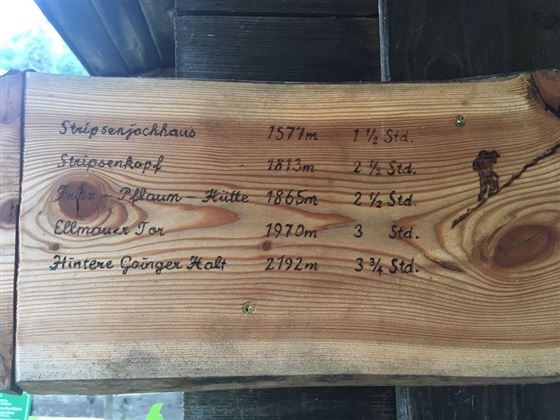 Stripsenjochhaus 1577m 1 1/2 Std.
Stripsenkopf 1813m 2 1/2 Std.
Fritz - Pflaum - Hütte 1865m 2 1/2 Std.
Ellmauer Tor 1970m 3 Std.
Hintere Goinger Halt 2192m 3 3/4 Std.